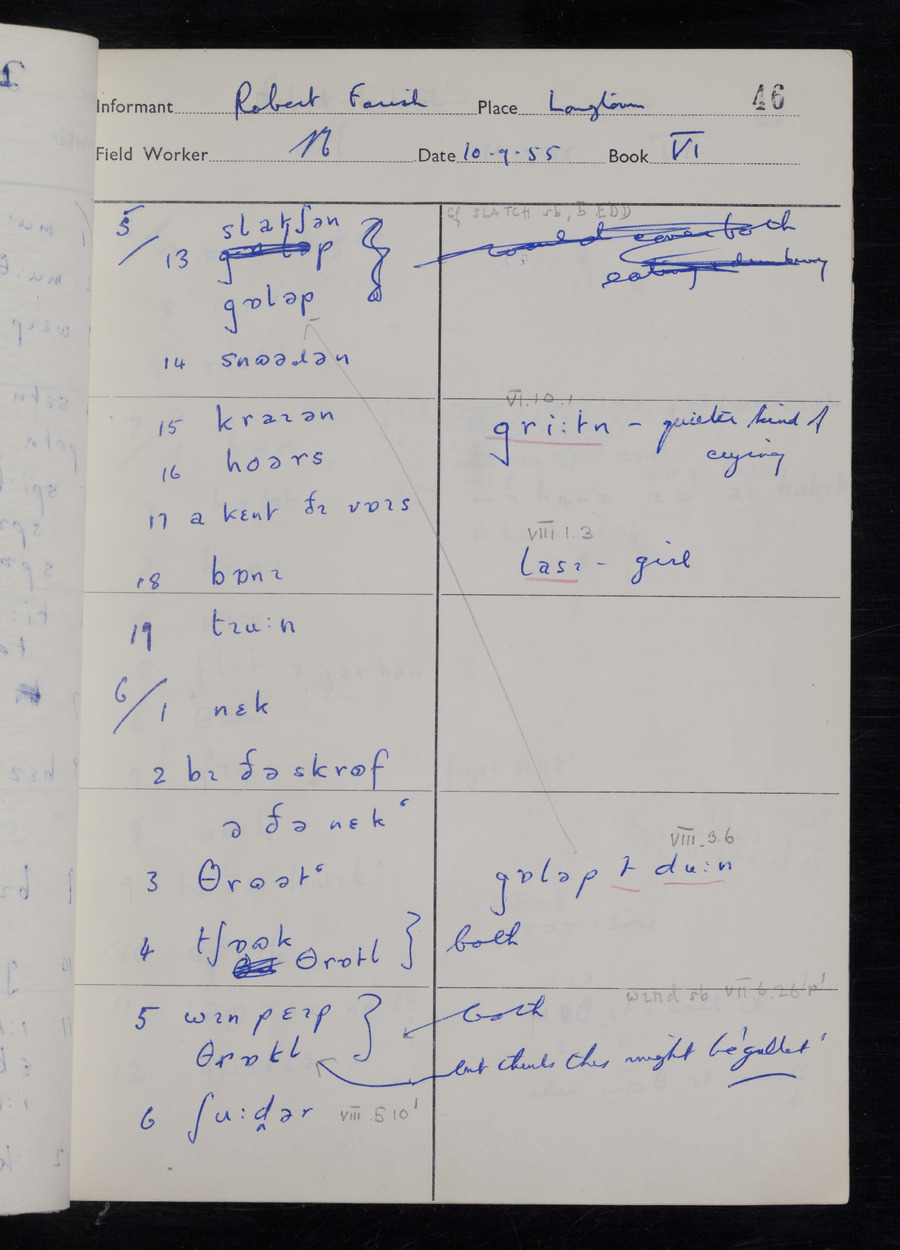 46
Informant Robert Farish Place Longtown
Field Worker N Date 10.9.55 Book VI
cf SLATCH sb, 5 EDD
5/13 slatʃən
could cover both
gɒləp
14 snɷədən
VI.10.1
15 kraɪən
gri:tn – quieter kind of
crying
16 hoərs
17 a kɛnt ðɪ vɒɪs
VIII 1.3
lasɪ – girl
18 bɒnɪ
19 tɪu:n
6/1 nɛk
2 bɪ ðə skrɷf
ə ðə nɛkʿ
VIII.3.6
3 θrɷətʿ
gɒləp t du:n
4 tʃɒɷk
θrɒtl
both
wɪnd sb VII.6.26 p'
5 wɪn pɛɪp
both
θrɒtl
but thinks this might be 'gullet'
6 ʃu:d̪ər VIII.5.10'